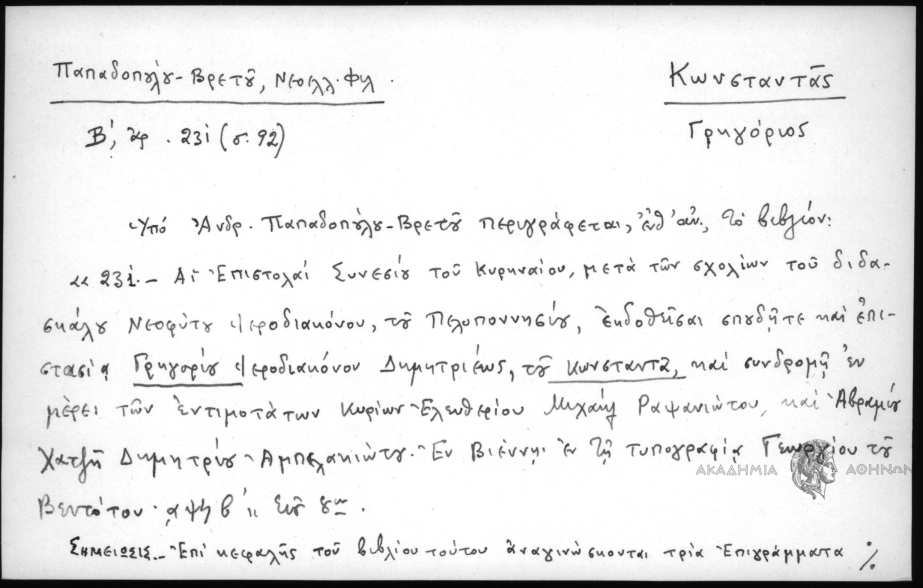 Παπαδοπούλου-Βρετοῦ, Νεοελλ. Φιλ.
Κωνσταντᾶς
Γρηγόριος
Β΄, ἀρ. 231 (σ. 92)
Ὑπό Ἀνδρ. Παπαδοπούλου-Βρετοῦ περιγράφεται, ἐνθ' ἀν., τό βιβλίον:
«231.- Αἱ Ἐπιστολαί Συνεσίου τοῦ Κυρηναίου, μετά τῶν σχολίων τοῦ διδα-
σκάλου Νεοφύτου Ἱεροδιακόνου, τοῦ Πελοποννησίου, ἐκδοθεῖσαι σπουδῇ τε καί ἐπι-
στασίᾳ Γρηγορίου Ἱεροδιακόνου Δημητριέως, τοῦ Κωνσταντᾶ, καί συνδρομῇ ἐν
μέρει τῶν ἐντιμοτάτων Κυρίων Ἐλευθερίου Μιχαήλ Ραψανιώτου, καί Ἀβραμίου
Χατζῆ Δημητρίου Ἀμπελακιώτου. Ἐν Βιέννῃ ἐν τῇ τυπογραφίᾳ Γεωργίου τοῦ
ΑΚΑΔΗΜΙΑ ΑΘΗΝΩΝ
Βεντότου. αψϟβ΄ εἰς 8ον.
Σημείωσις.- Ἐπί κεφαλῆς τοῦ βιβλίου τούτου ἀναγινώσκονται τρία Ἐπιγράμματα ./.